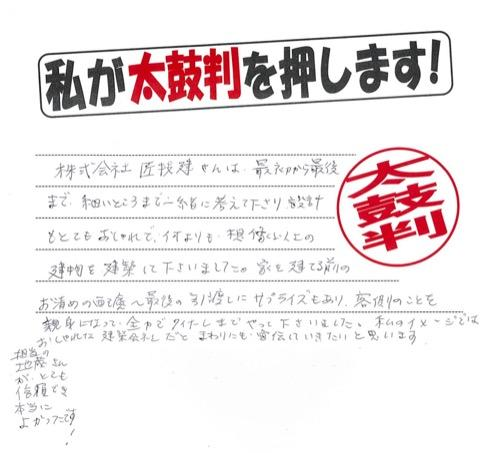 私が太鼓判を押します!
太鼓判
株式会社 匠技建さんは、最初から最後
まで、細いところまで一緒に考えて下さり 設計
もとてもおしゃれで、何よりも、想像以上の
建物を建築して下さいました。家を建てる前の
お清めの 最後の引渡しにサプライズもあり、客側のことを
親身になって 全力で までやって下さいました。私のイメージでは
おしゃれな 建築会社だと まわりにも宣伝していきたいと思います
担当の
さん
が、とても
信頼でき
本当に
よかったです!